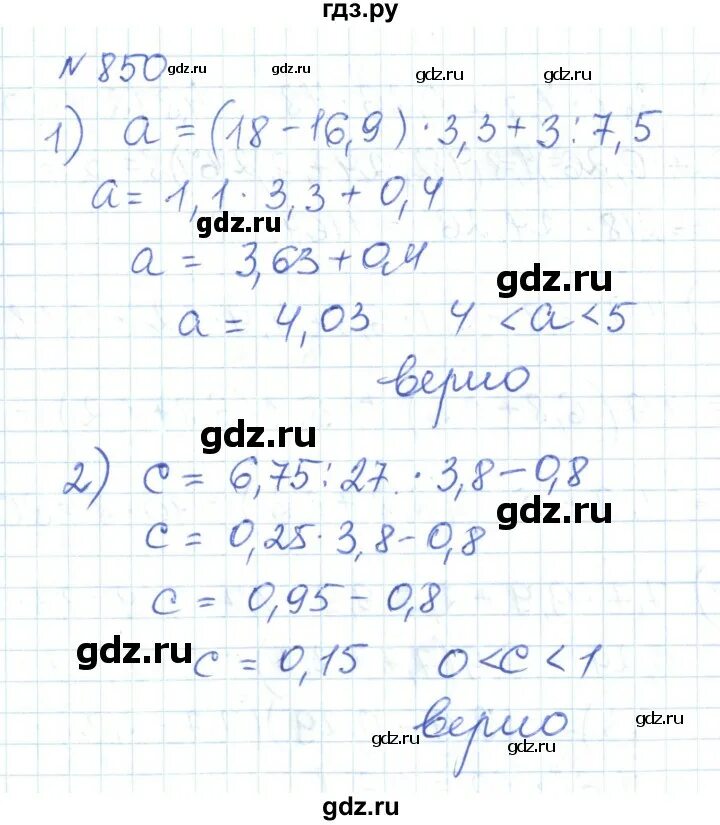 гдз.ру
№ 850 gdz.ru gdz.ru gdz.ru gdz.ru
1) a = (18 - 16,9) · 3,3 + 3 : 7,5
a = 1,1 · 3,3 + 0,4
gdz.ru
a = 3,63 + 0,4
gdz.ru
a = 4,03 4 < a < 5
верно
gdz.ru
2) c = 6,75 : 27 · 3,8 - 0,8
gdz.ru
c = 0,25 · 3,8 - 0,8
c = 0,95 - 0,8
gdz.ru
c = 0,15 0 < c < 1
верно
gdz.ru gdz.ru gdz.ru
gdz.ru